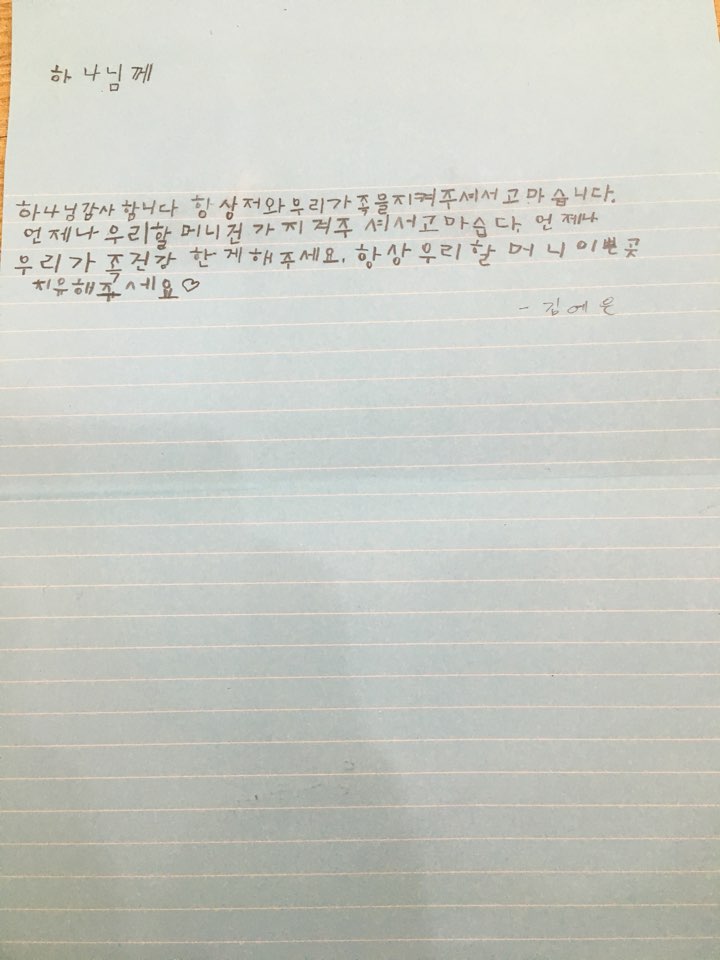 하나님께
하나님감사합니다 항상저와우리가족을지켜주셔서고마습니다.
언제나우리할머니건가지겨주셔서고마습다. 언제나
우리가족건강한게해주세요. 항상우리할머니이쁜곳
치유해주세요♡
- 김예은